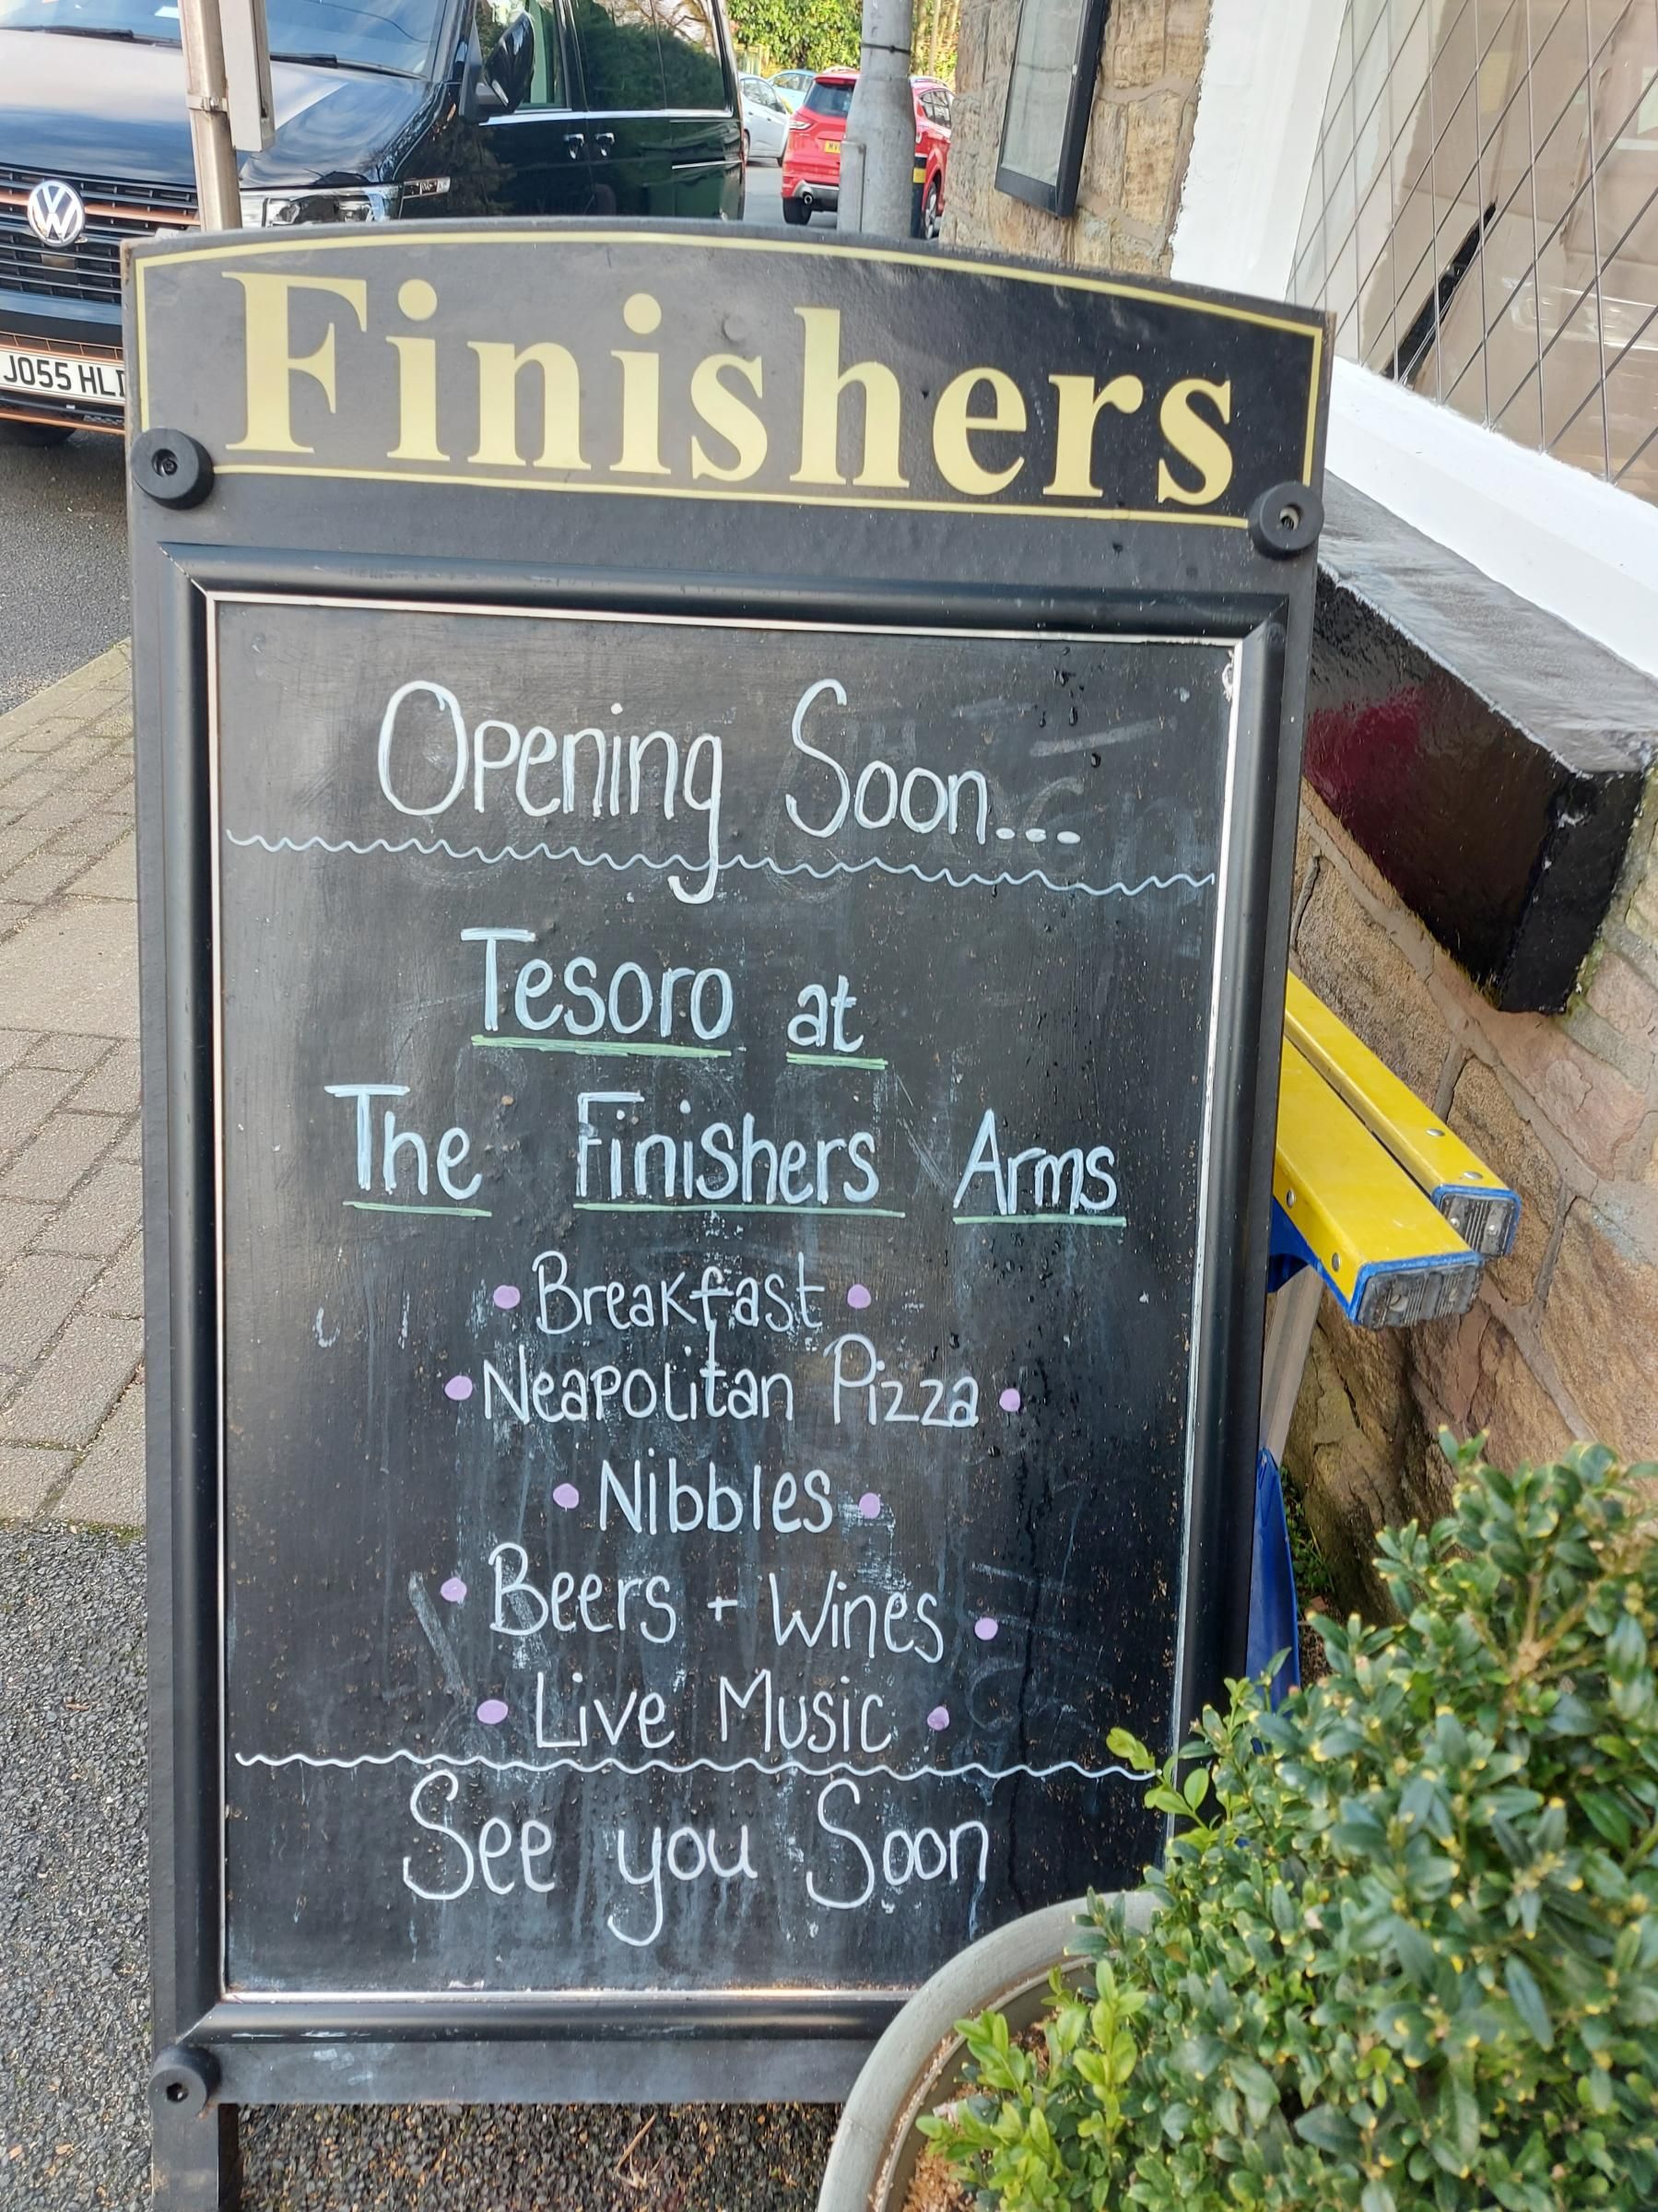 JO55 HL
Finishers
Opening Soon...
Tesoro at
The Finishers Arms
• Breakfast •
• Neapolitan Pizza •
• Nibbles •
• Beers + Wines •
• Live Music •
See you Soon